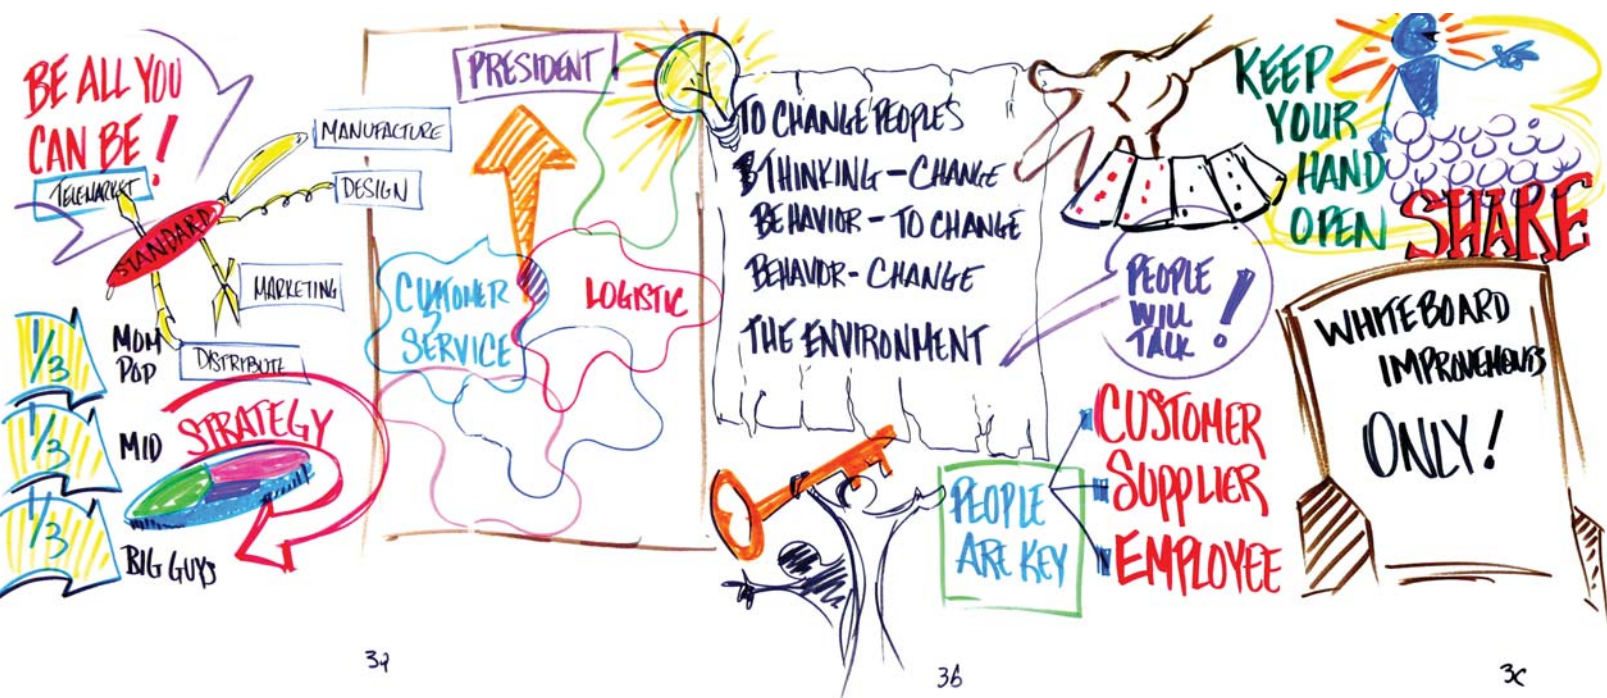 BE ALL YOU
CAN BE!
TELEMARKET
STANDARD
MANUFACTURE
DESIGN
MARKETING
DISTRIBUTE
1/3
MOM
POP
1/3
MID
1/3
BIG GUYS
STRATEGY
PRESIDENT
CUSTOMER
SERVICE
LOGISTIC
3a
TO CHANGE PEOPLE'S
THINKING - CHANGE
BEHAVIOR - TO CHANGE
BEHAVIOR - CHANGE
THE ENVIRONMENT
PEOPLE
WILL
TALK!
PEOPLE
ARE KEY
CUSTOMER
SUPPLIER
EMPLOYEE
3b
KEEP
YOUR
HAND
OPEN
SHARE
WHITEBOARD
IMPROVEMENTS
ONLY!
3c